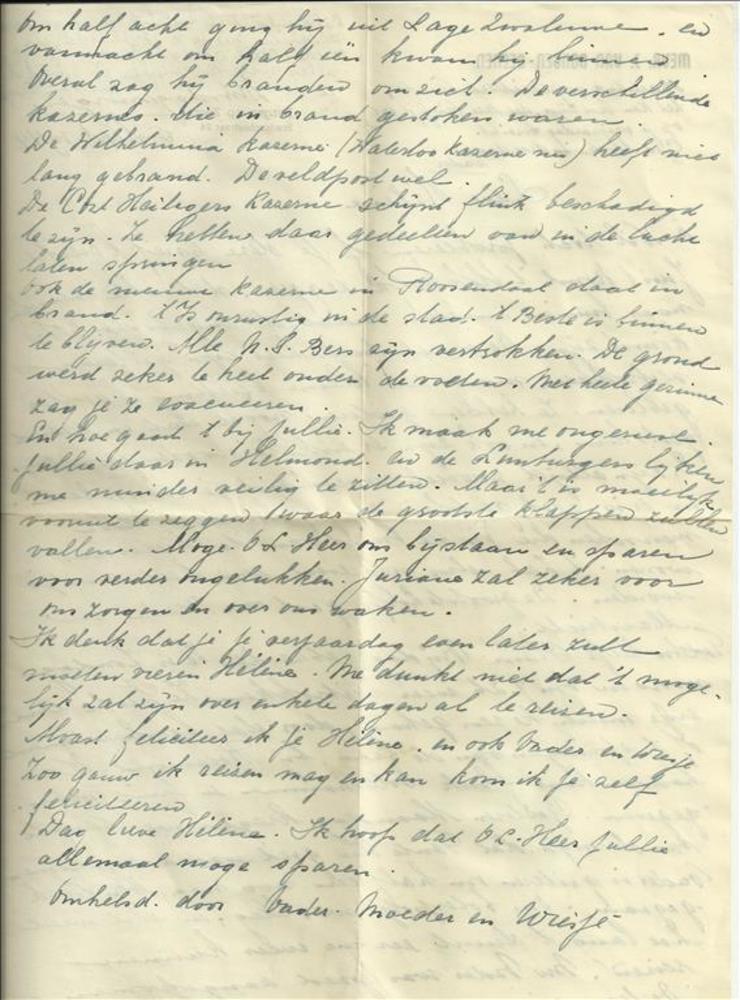 Om half acht ging hij uit Lage Zwaluwe. en
vannacht om half één kwam hij binnen
Overal zag hij branden om zich. De verschillende
kazernes. die in brand gestoken waren.
De Wilhelmina Kazerne (Waterloo kazerne nu) heeft niet
lang gebrand. De veldpost wel.
De Cort Heiligers Kazerne schijnt flink beschadigd
te zijn. Ze hebben daar gedeelten van in de lucht
laten springen
ook de nieuwe Kazerne in Roosendaal staat in
brand. 't Is onrustig in de stad. 't Beste is binnen
te blijven. Alle N.S.Bers zijn vertrokken. De grond
werd zeker te heet onder de voeten. Met heele gezinnen
zag je ze evacueeren.
En hoe gaat 't bij jullie. Ik maak me ongerust.
Jullie daar in Helmond. en de Limburgers lijken
me minder veilig te zitten. Maar 't is moeilijk
vooruit te zeggen waar de grootste klappen zullen
vallen. Moge O.L. Heer ons bijstaan en sparen
voor verder ongelukken. zal zeker voor
ons zorgen en over ons waken.
Ik denk dat je je verjaardag even later zult
moeten vieren Hélène. Me dunkt niet dat 't moge-
lijk zal zijn over enkele dagen al te reizen.
Maar feliciteer ik je Hélène. en ook Vader en Wiesje
Zoo gauw ik reizen mag en kan kom ik je zelf
feliciteeren
Dag lieve Hélène. Ik hoop dat O.L. Heer jullie
allemaal moge sparen.
Omhelsd. door Vader. Moeder en Wiesje